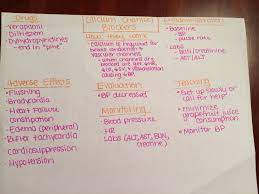 Drugs
Verapamil
Diltiazem
Dihydropyridines
- end in "pine"
Calcium Channel
Blockers
How they work
- Calcium is required for
- when channels are
blocked
causing ↓BP.
- Baseline
- BP
- pulse rate
- Labs
- BUN/creatinine
- AST/ALT
Adverse Effects
- Flushing
- Bradycardia
- Heart Failure
- Constipation
- Edema (peripheral)
- Reflex tachycardia
- Cardiosuppression
- Hypotension
Evaluation
- BP decreases
Monitoring
- Blood Pressure
- HR
- Labs (ALT, AST, BUN,
creatine)
Teaching
- Get up slowly or
call for help!
- minimize
grapefruit juice
consumption
- Monitor BP